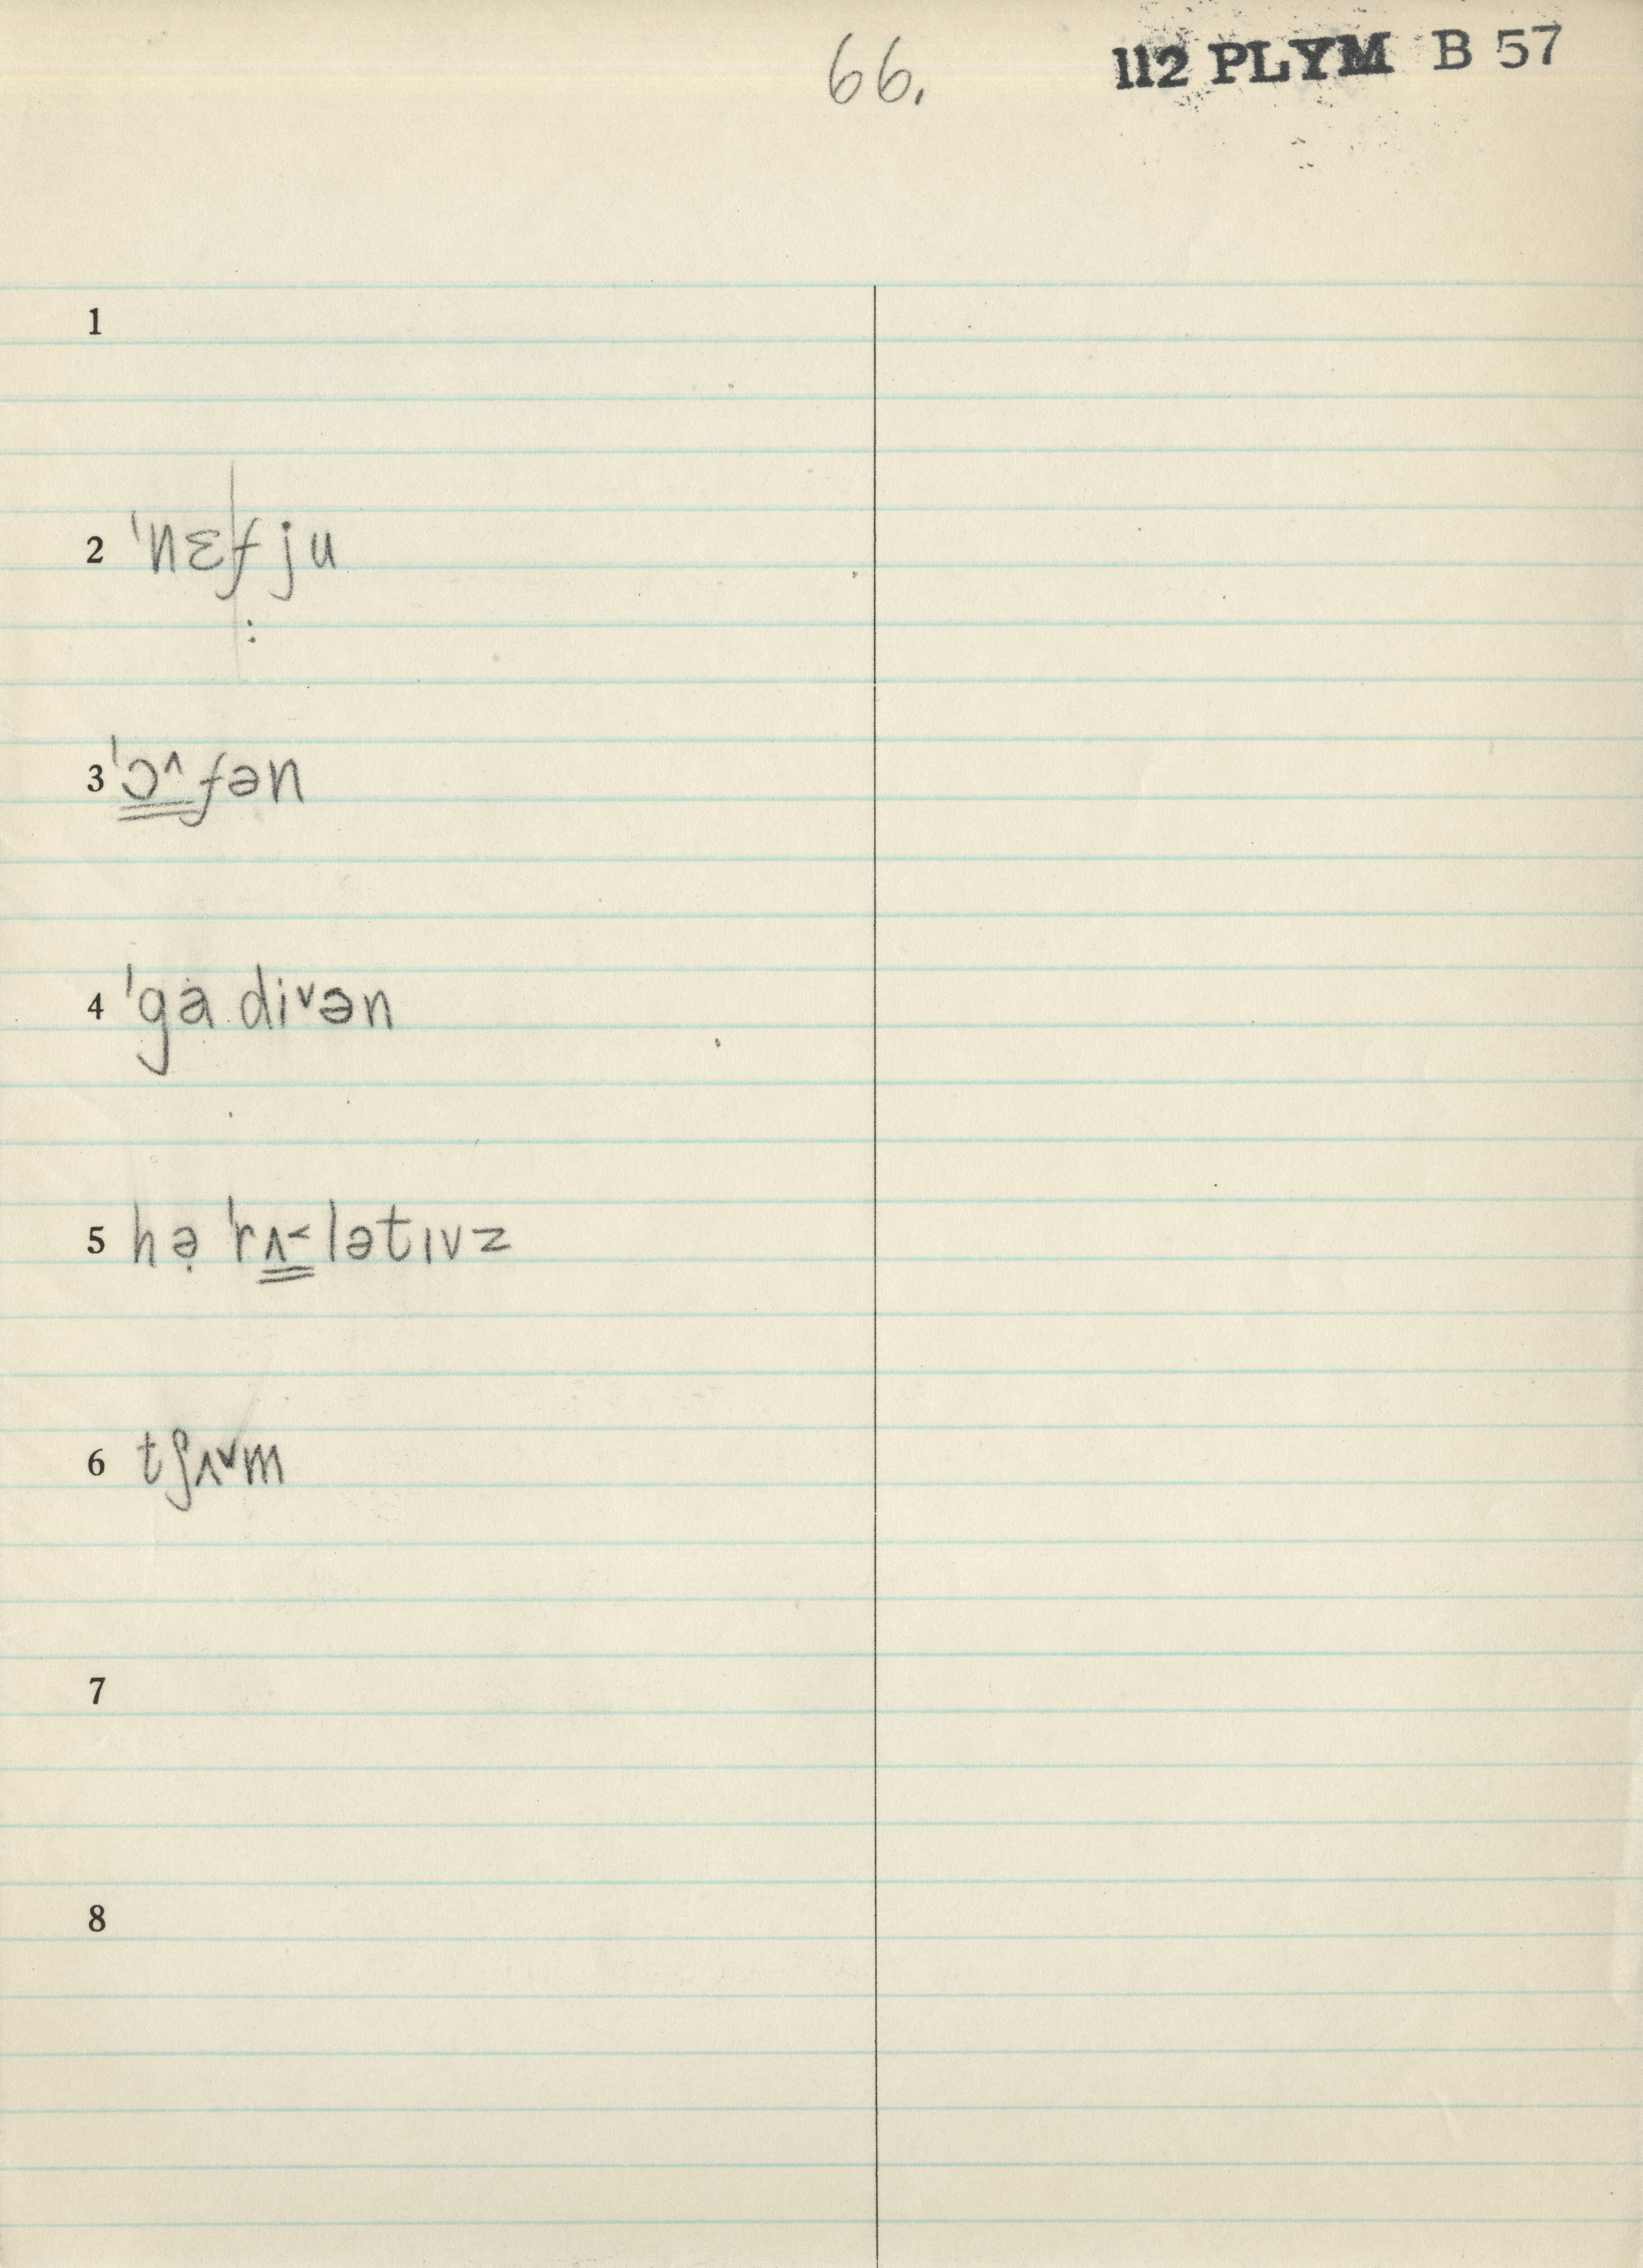 66.
112 PLYM B 57
1
2 ˈnɛfju
:
3 ˈɔ^fən
4 ˈgȧdiᵛən
5 hə̣ˈrʌ˂lətɪvz
6 tʃʌᵛm
7
8